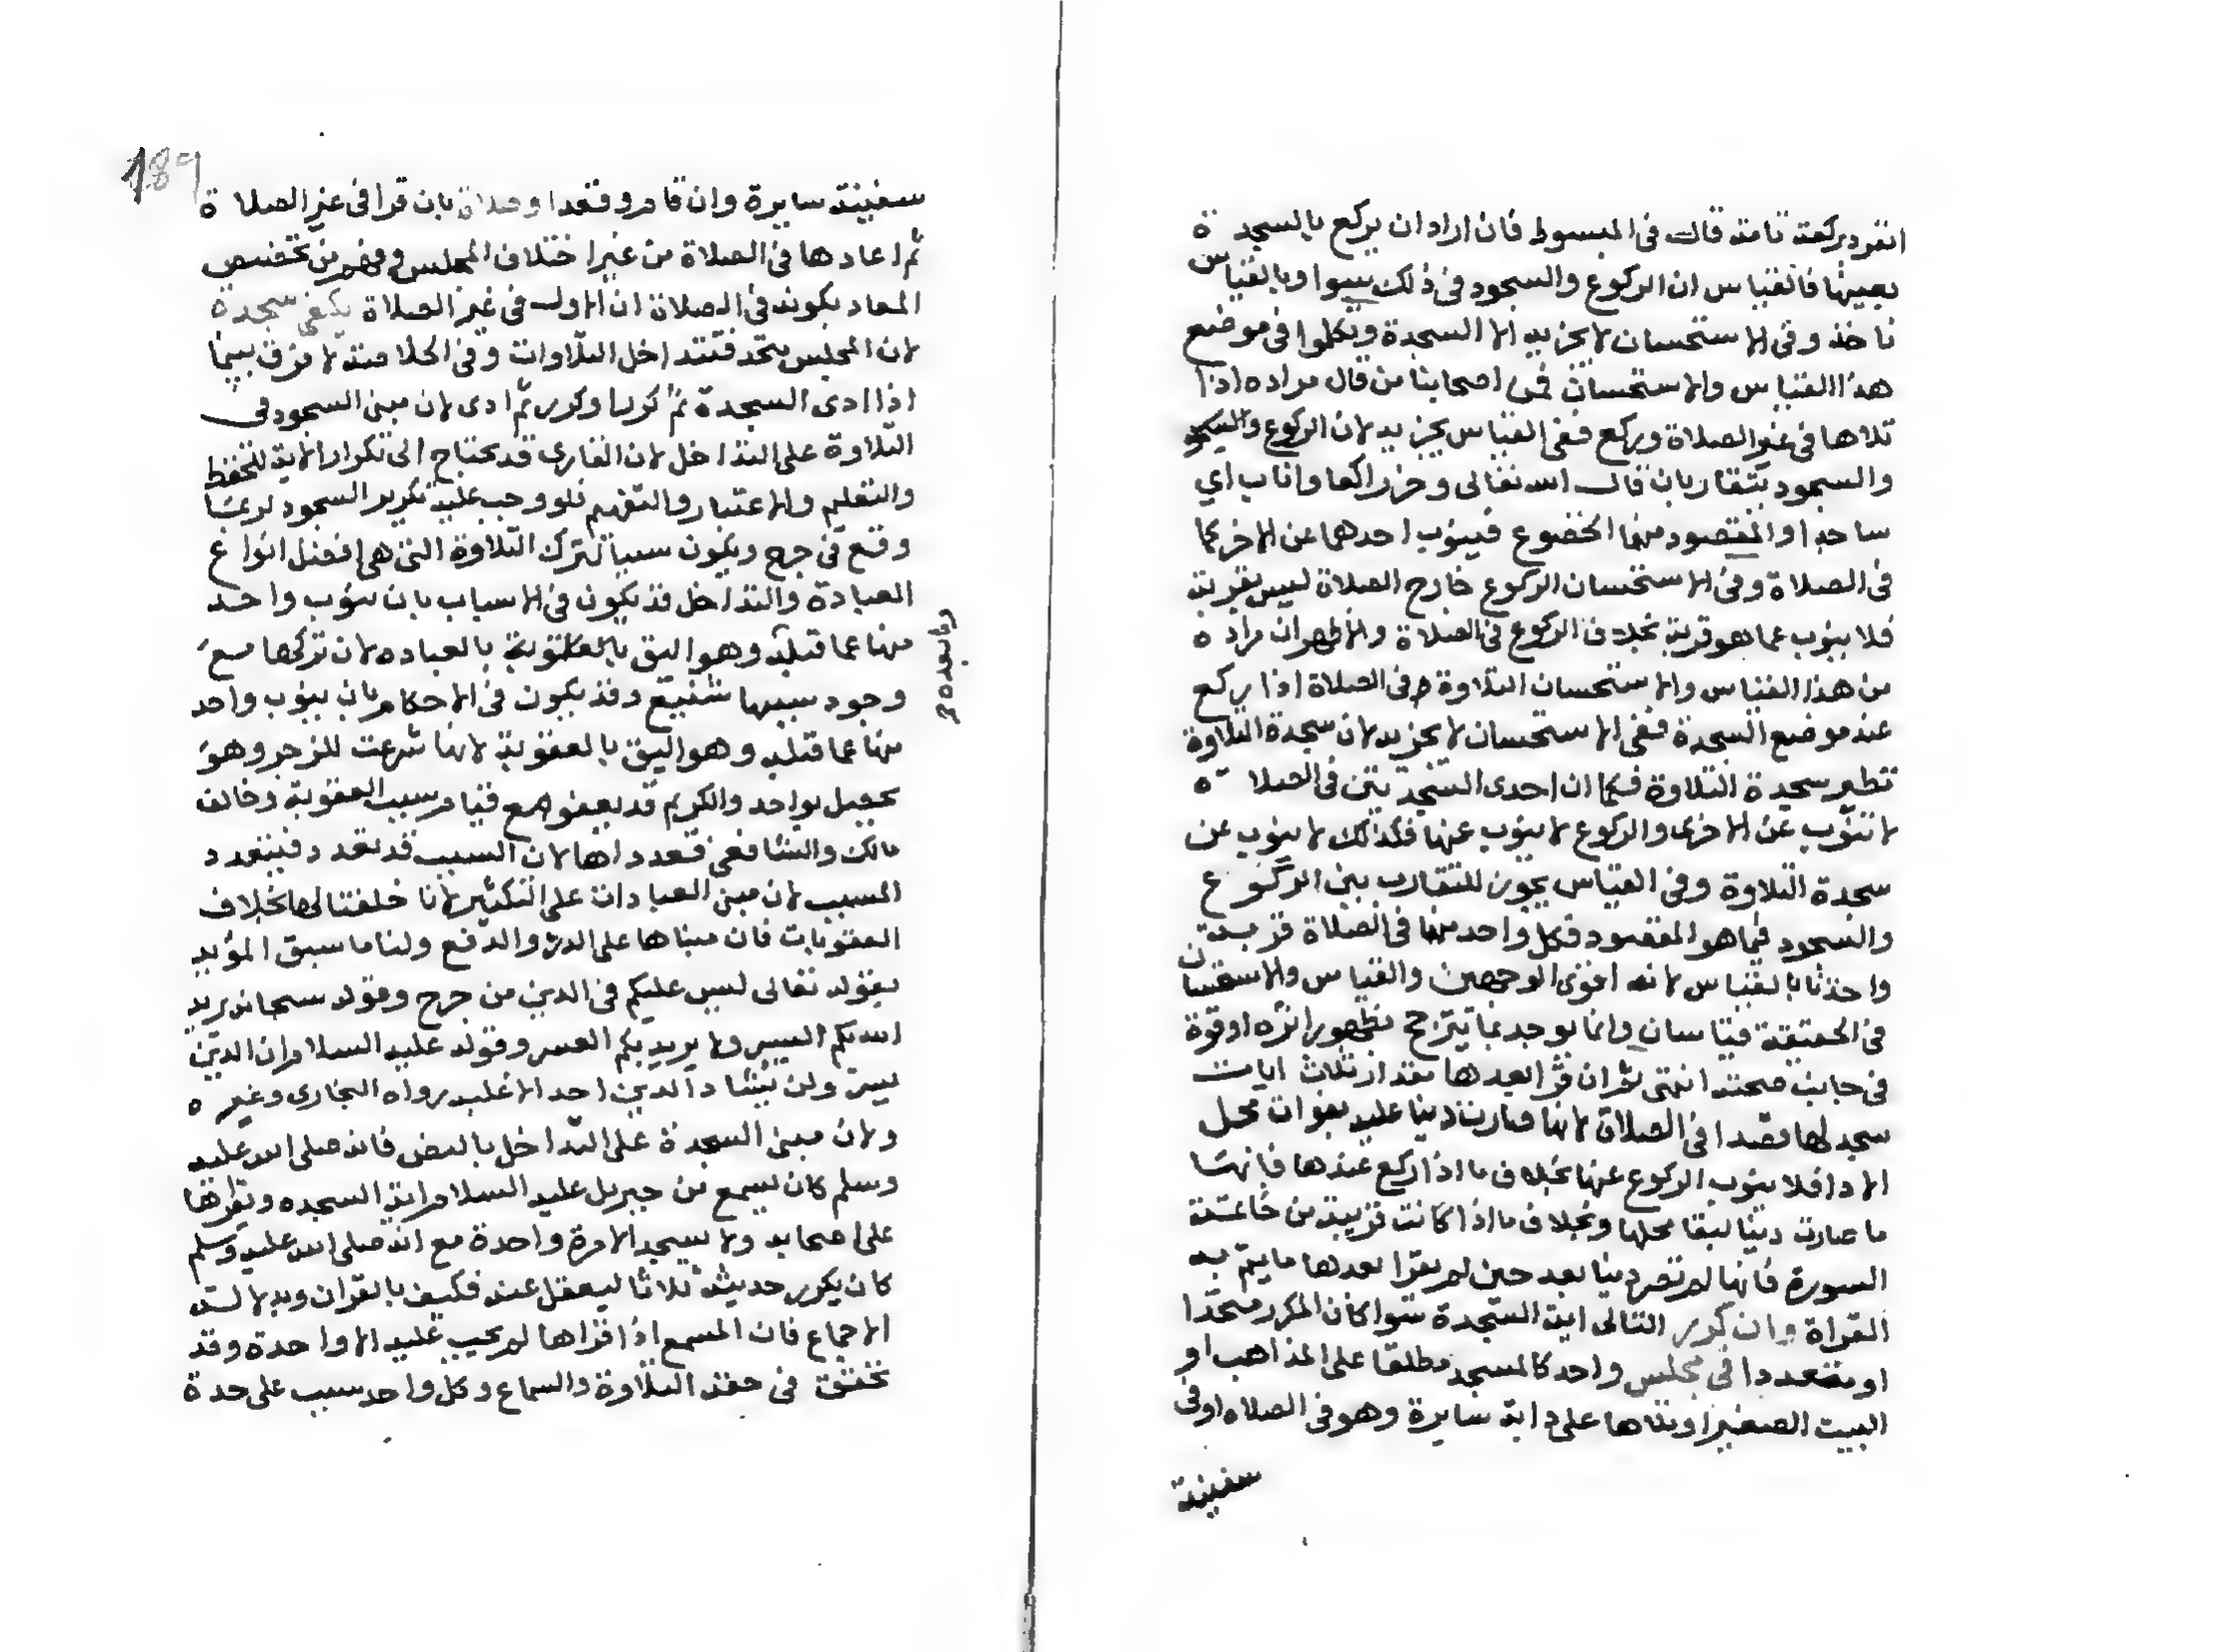 انفرد بركعة تامة قال في المبسوط فان اراد ان يركع بالسجدة
بعينها فالقياس ان الركوع والسجود في ذلك سوا وبالقياس
ناخذ وفي الاستحسان لا يجزيه الا السجدة وتكلموا في موضع
هذا القياس والاستحسان فمن اصحابنا من قال مراده اذا
تلاها في غير الصلاة وركع ففي القياس يجزيه لان الركوع
والسجود يتقاربان قال الله تعالى وخر راكعا واناب اي
ساجدا والمقصود منهما الخضوع فينوب احدهما عن الاخر كما
في الصلاة وفي الاستحسان الركوع خارج الصلاة ليس بقربة
فلا ينوب عما هو قربة بخلاف الركوع في الصلاة والاظهر ان مراده
من هذا القياس والاستحسان التلاوة في الصلاة اذا ركع
عند موضع السجدة ففي الاستحسان لا يجزيه لان سجدة التلاوة
نظير سجدة التلاوة فكما ان احدى السجدتين في الصلاة
لا تنوب عن الاخرى والركوع لا ينوب عنها فكذلك لا ينوب عن
سجدة التلاوة وفي القياس يجوز للتقارب بين الركوع
والسجود فيما هو المقصود فكل واحد منهما في الصلاة قربة
واخذنا بالقياس لانه اقوى الوجهين والقياس والاستحسان
في الحقيقة قياسان وانما يوخذ بما يترجح بظهور اثره او قوة
في جانب صحته انتهى ثم ان قرا بعدها مقدار ثلاث ايات
سجد لها قصدا في الصلاة لانها صارت دينا عليه بفوات محل
الادا فلا ينوب الركوع عنها بخلاف ما اذا ركع عندها فانها
ما صارت دينا لبقا محلها وبخلاف ما اذا كانت قريبة من خاتمة
السورة فانها لم تصر دينا بعد حين لم يقرا بعدها ما يتم به
القراة وان كرر التالي اية السجدة سوا كان المكرر متحدا
او متعددا في مجلس واحد كالمسجد مطلقا على المذاهب او
البيت الصغير او تلاها على دابة سايرة وهو في الصلاه او في
سفينة
189
سفينة سايرة وان قام وقعد او صلاة بان قرا في غير الصلاة
ثم اعادها في الصلاة من غير اختلاف المجلس وفهم من تخصيص
المعاد بكونه في الصلاة ان الاول في غير الصلاة يكفي سجدة
لان المجلس متحد فتتداخل التلاوات وفي الخلاصة لا فرق بينما
اذا ادى السجدة ثم كررها وكرر ثم ادى لان مبنى السجود في
التلاوة على التداخل لان القاري قد يحتاج الى تكرار الاية للتحفظ
والتعليم والاعتبار والتفهم فلو وجب عليه تكرير السجود لربما
وقع في حرج ويكون سببا لترك التلاوة التي هي افضل انواع
العبادة والتداخل قد يكون في الاسباب بان ينوب واحد
منها عما قبله وهو اليق بالعبادة لان تركها مع
وما بعده
وجود سببها شنيع وقد يكون في الاحكام بان ينوب واحد
منها عما قبله وهو اليق بالعقوبة لانها شرعت للزجر وهو
يحصل بواحد والكريم قد يعفو مع قيام سبب العقوبة وخالف
مالك والشافعي فعدداها لان السبب قد تعدد فيتعدد
المسبب لان مبنى العبادات على التكثير لانا خلقنا لها بخلاف
العقوبات فان مبناها على الدرء والدفع ولنا ما سبق المؤيد
بقوله تعالى ليس عليكم في الدين من حرج وقوله سبحانه يريد
الله بكم اليسر ولا يريد بكم العسر وقوله عليه السلام ان الدين
يسر ولن يشاد الدين احد الا غلبه رواه البخاري وغيره
ولان مبنى السجدة على التداخل بالنص فانه صلى الله عليه
وسلم كان يسمع من جبريل عليه السلام اية السجده ويقراها
على اصحابه ولا يسجد الا مرة واحدة مع انه صلى الله عليه وسلم
كان يكرر حديثه ثلاثا ليعقل عنه فكيف بالقران وبدلالة
الاجماع فان المسمع اذا قراها لم يجب عليه الا واحدة وقد
تحقق في حقه التلاوة والسماع وكل واحد سبب على حدة